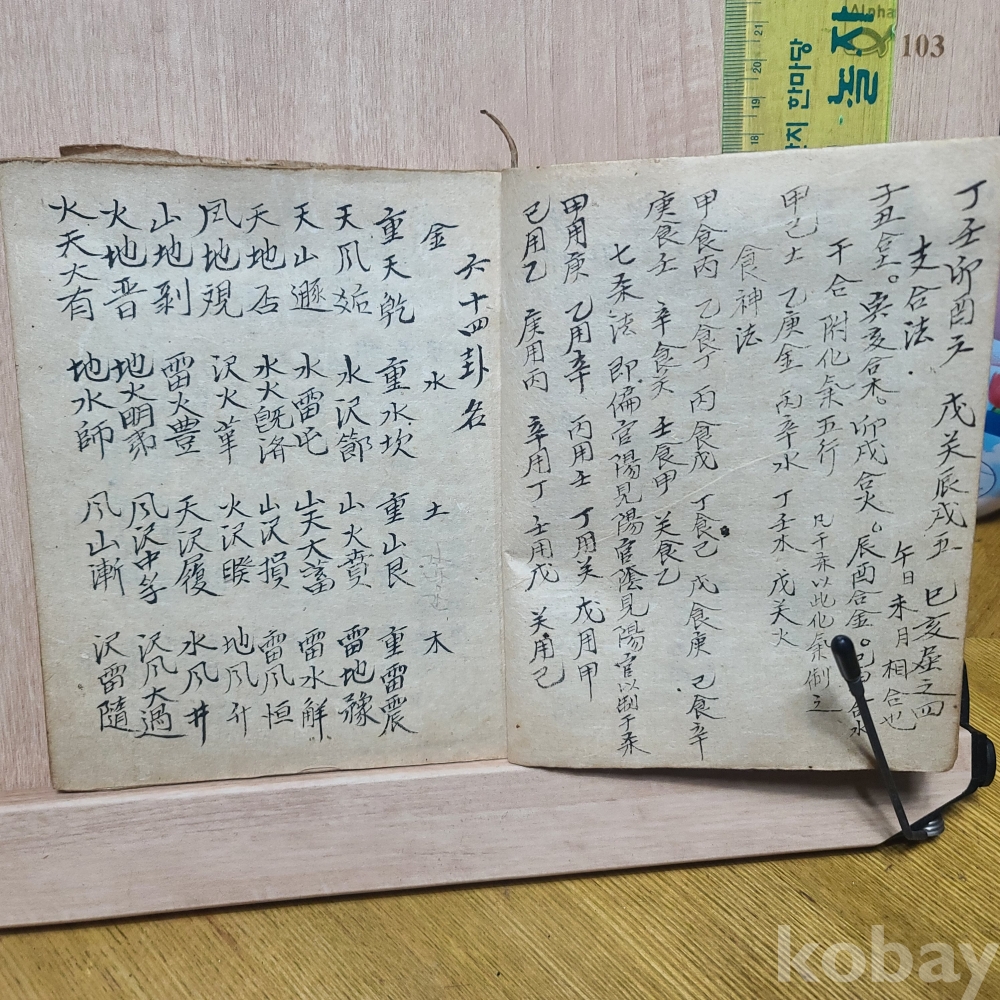 丁壬卯酉六 戊癸辰戌五 巳亥屬之四
支合法 午日未月相合也
子丑合土。寅亥合木。卯戌合火。辰酉合金。巳申合水
干合附化氣五行 凡干柔以此化氣倒之
甲己土 乙庚金 丙辛水 丁壬木 戊癸火
食神法
甲食丙 乙食丁 丙食戊 丁食己 戊食庚 己食辛
庚食壬 辛食癸 壬食甲 癸食乙
七柔法 即偏官陽見陽官陰見陽官以制于柔
甲用庚 乙用辛 丙用壬 丁用癸 戊用甲
己用乙 庚用丙 辛用丁 壬用戊 癸用己
六十四卦名
金 水 土 木
重天乾 重水坎 重山艮 重雷震
天風姤 水沢節 山火賁 雷地豫
天山遯 水雷屯 山天大畜 雷水解
天地否 水火旣済 山沢損 雷風恒
風地観 沢火革 火沢睽 地風升
山地剝 雷火豊 天沢履 水風井
火地晋 地火明夷 風沢中孚 沢風大過
火天大有 地水師 風山漸 沢雷隨
한마당
놀자
Alpha
103
21
20
19
18
kobay